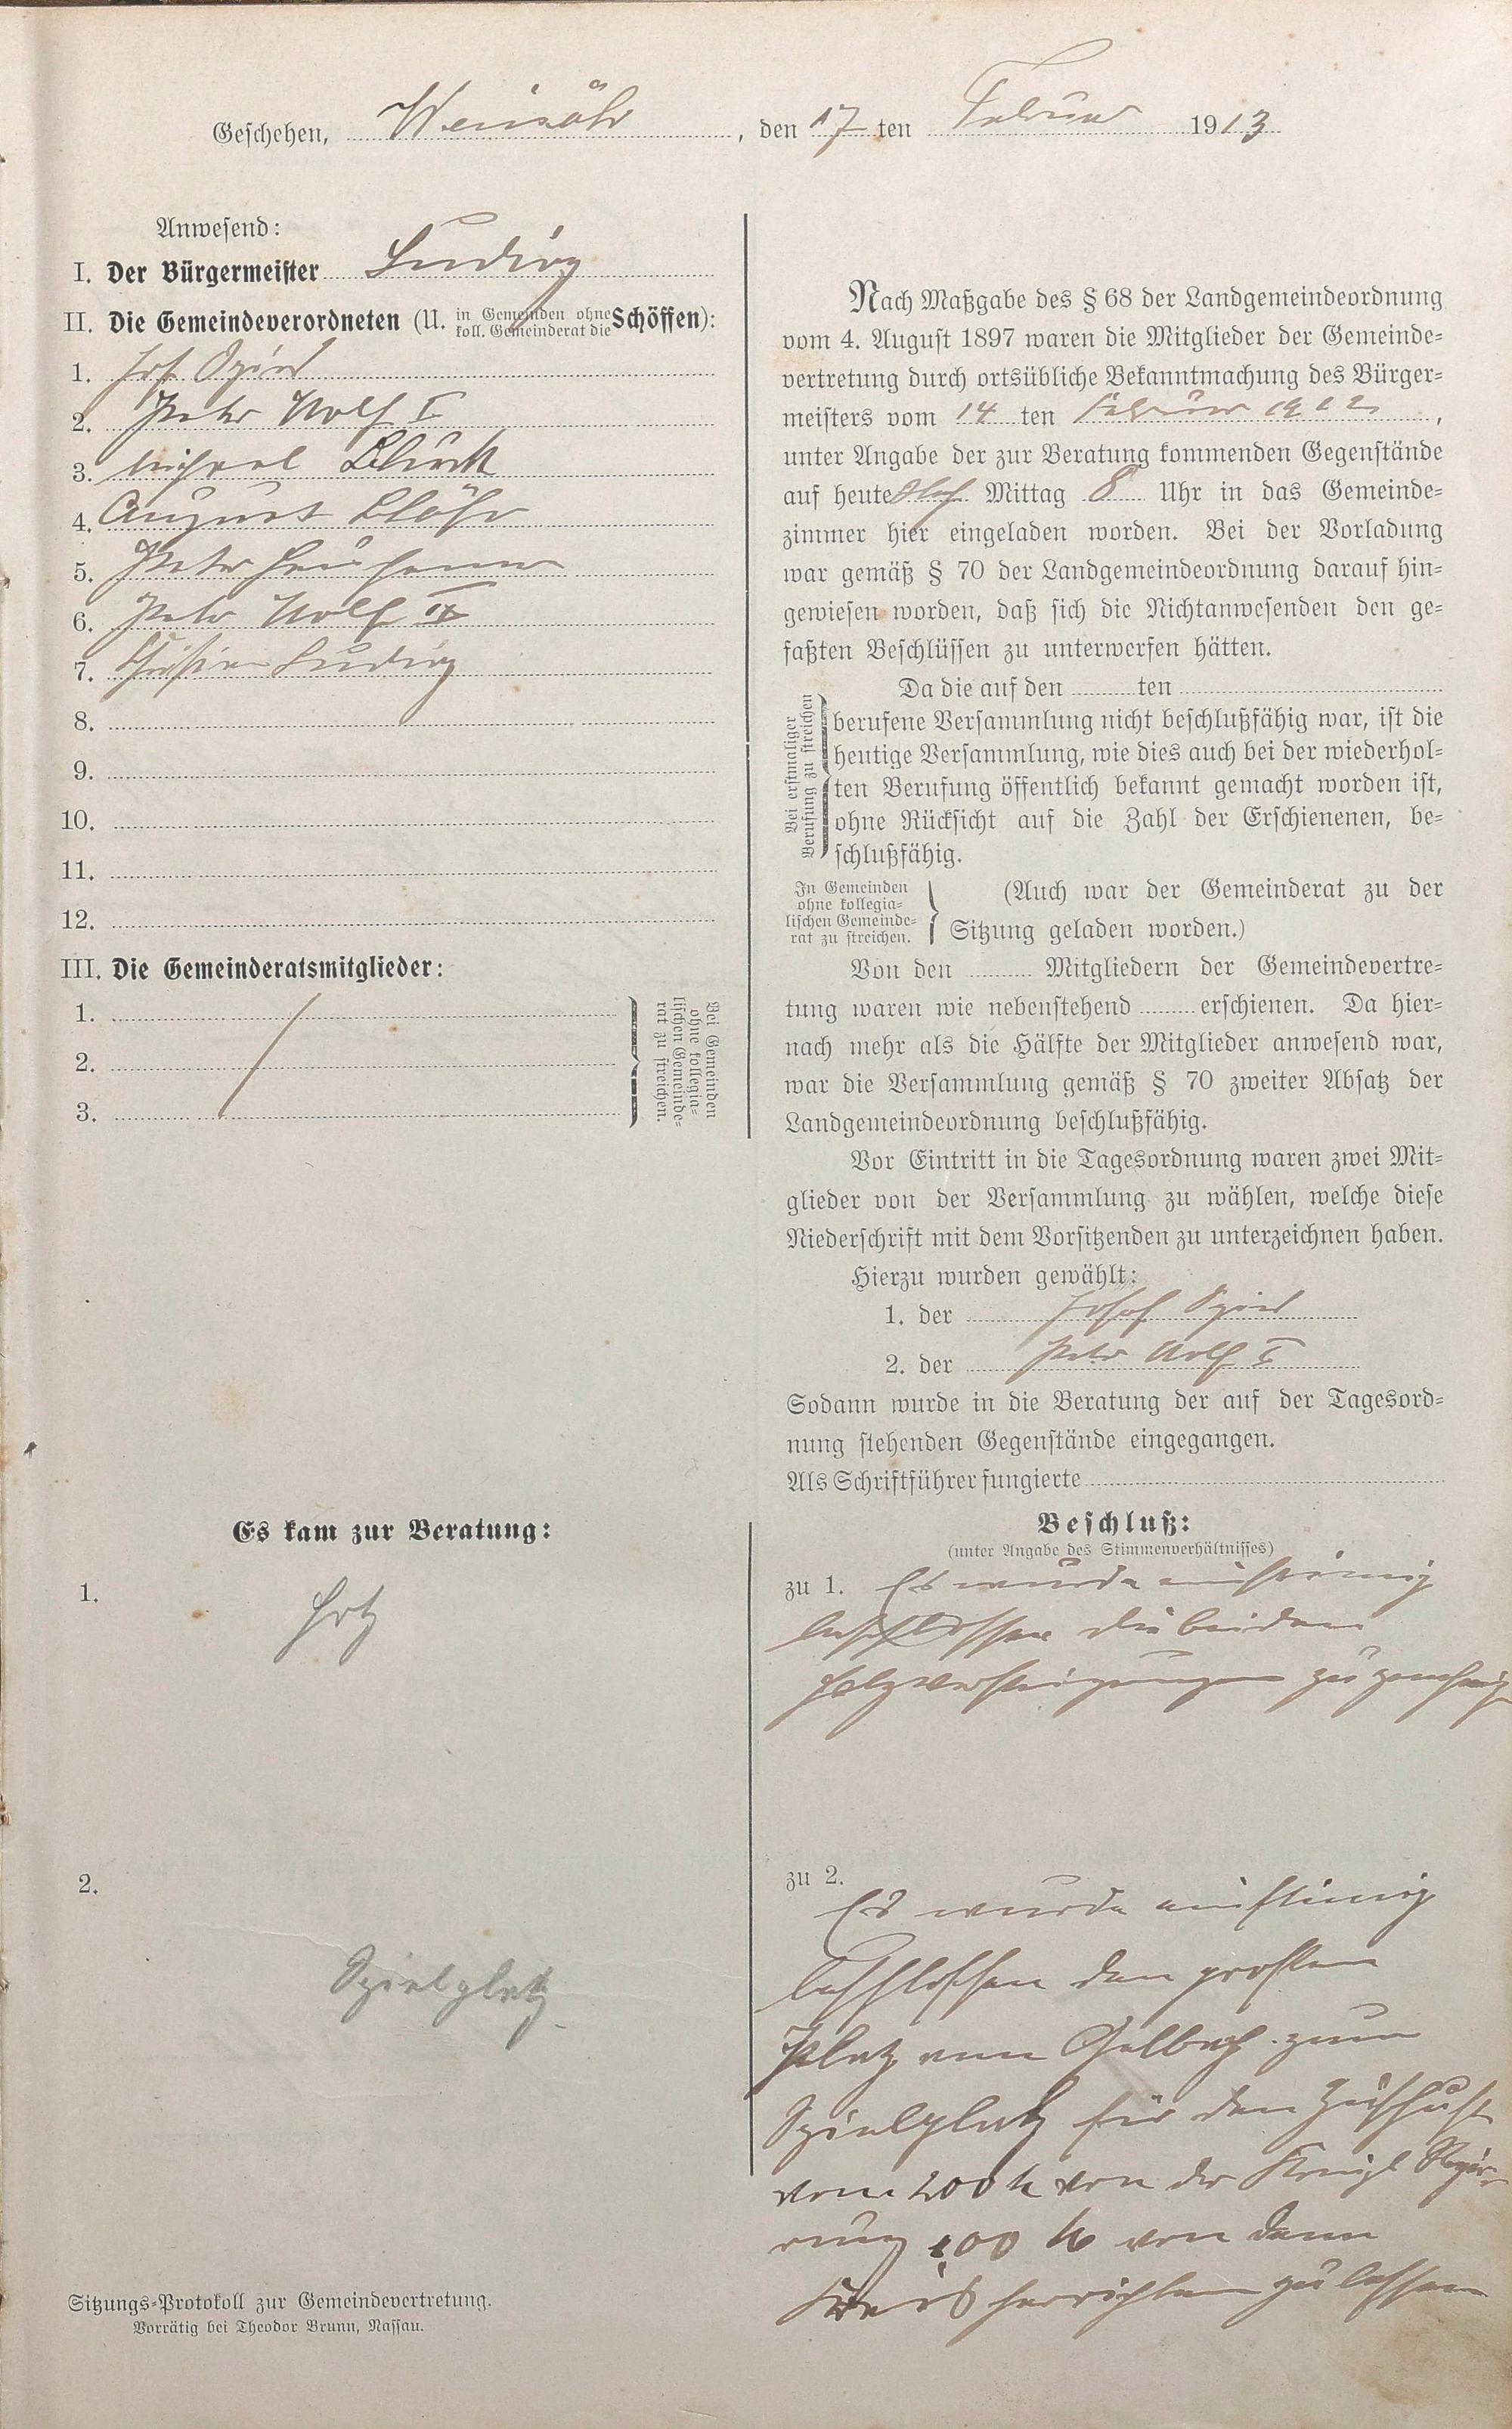 Geschehen, Weinähr, den 17 ten Februar 1913
Anwesend:
I. Der Bürgermeister Ludwig
II. Die Gemeindeverordneten (U. in Gemeinden ohne koll. Gemeinderat die Schöffen):
1.
2. Peter Wolf I
3. Michael
4. August
5. Peter
6. Peter Wolf IX
7. Christian Ludwig
8.
9.
10.
11.
12.
III. Die Gemeinderatsmitglieder:
1.
2.
3.
Bei Gemeinden
ohne kollegia-
lischen Gemeinde-
rat zu streichen.
Nach Maßgabe des § 68 der Landgemeindeordnung
vom 4. August 1897 waren die Mitglieder der Gemeinde-
vertretung durch ortsübliche Bekanntmachung des Bürger-
meisters vom 14 ten Februar 1912,
unter Angabe der zur Beratung kommenden Gegenstände
auf heute Mittag 8 Uhr in das Gemeinde-
zimmer hier eingeladen worden. Bei der Vorladung
war gemäß § 70 der Landgemeindeordnung darauf hin-
gewiesen worden, daß sich die Nichtanwesenden den ge-
faßten Beschlüssen zu unterwerfen hätten.
Bei erstmaliger
Berufung zu streichen
Da die auf den ten
berufene Versammlung nicht beschlußfähig war, ist die
heutige Versammlung, wie dies auch bei der wiederhol-
ten Berufung öffentlich bekannt gemacht worden ist,
ohne Rücksicht auf die Zahl der Erschienenen, be-
schlußfähig.
In Gemeinden
ohne kollegia-
lischen Gemeinde-
rat zu streichen.
(Auch war der Gemeinderat zu der
Sitzung geladen worden.)
Von den Mitgliedern der Gemeindevertre-
tung waren wie nebenstehend erschienen. Da hier-
nach mehr als die Hälfte der Mitglieder anwesend war,
war die Versammlung gemäß § 70 zweiter Absatz der
Landgemeindeordnung beschlußfähig.
Vor Eintritt in die Tagesordnung waren zwei Mit-
glieder von der Versammlung zu wählen, welche diese
Niederschrift mit dem Vorsitzenden zu unterzeichnen haben.
Hierzu wurden gewählt:
1. der Josef
2. der Peter Wolf I
Sodann wurde in die Beratung der auf der Tagesord-
nung stehenden Gegenstände eingegangen.
Als Schriftführer fungierte
Es kam zur Beratung:
1.
2.
Spielplatz
Beschluß:
(unter Angabe des Stimmenverhältnisses)
zu 1. Es wurde einstimig
beschlossen die beiden
Holzversteigerungen zu
zu 2.
Es wurde einstimig
beschlossen den großen
Platz am Gelbach zum
Spielplatz für den Zuschuß
von 200 M von der Königl Regie-
rung 100 M von dem
Kreis herrichten zu lassen
Sitzungs-Protokoll zur Gemeindevertretung.
Vorrätig bei Theodor Brunn, Nassau.